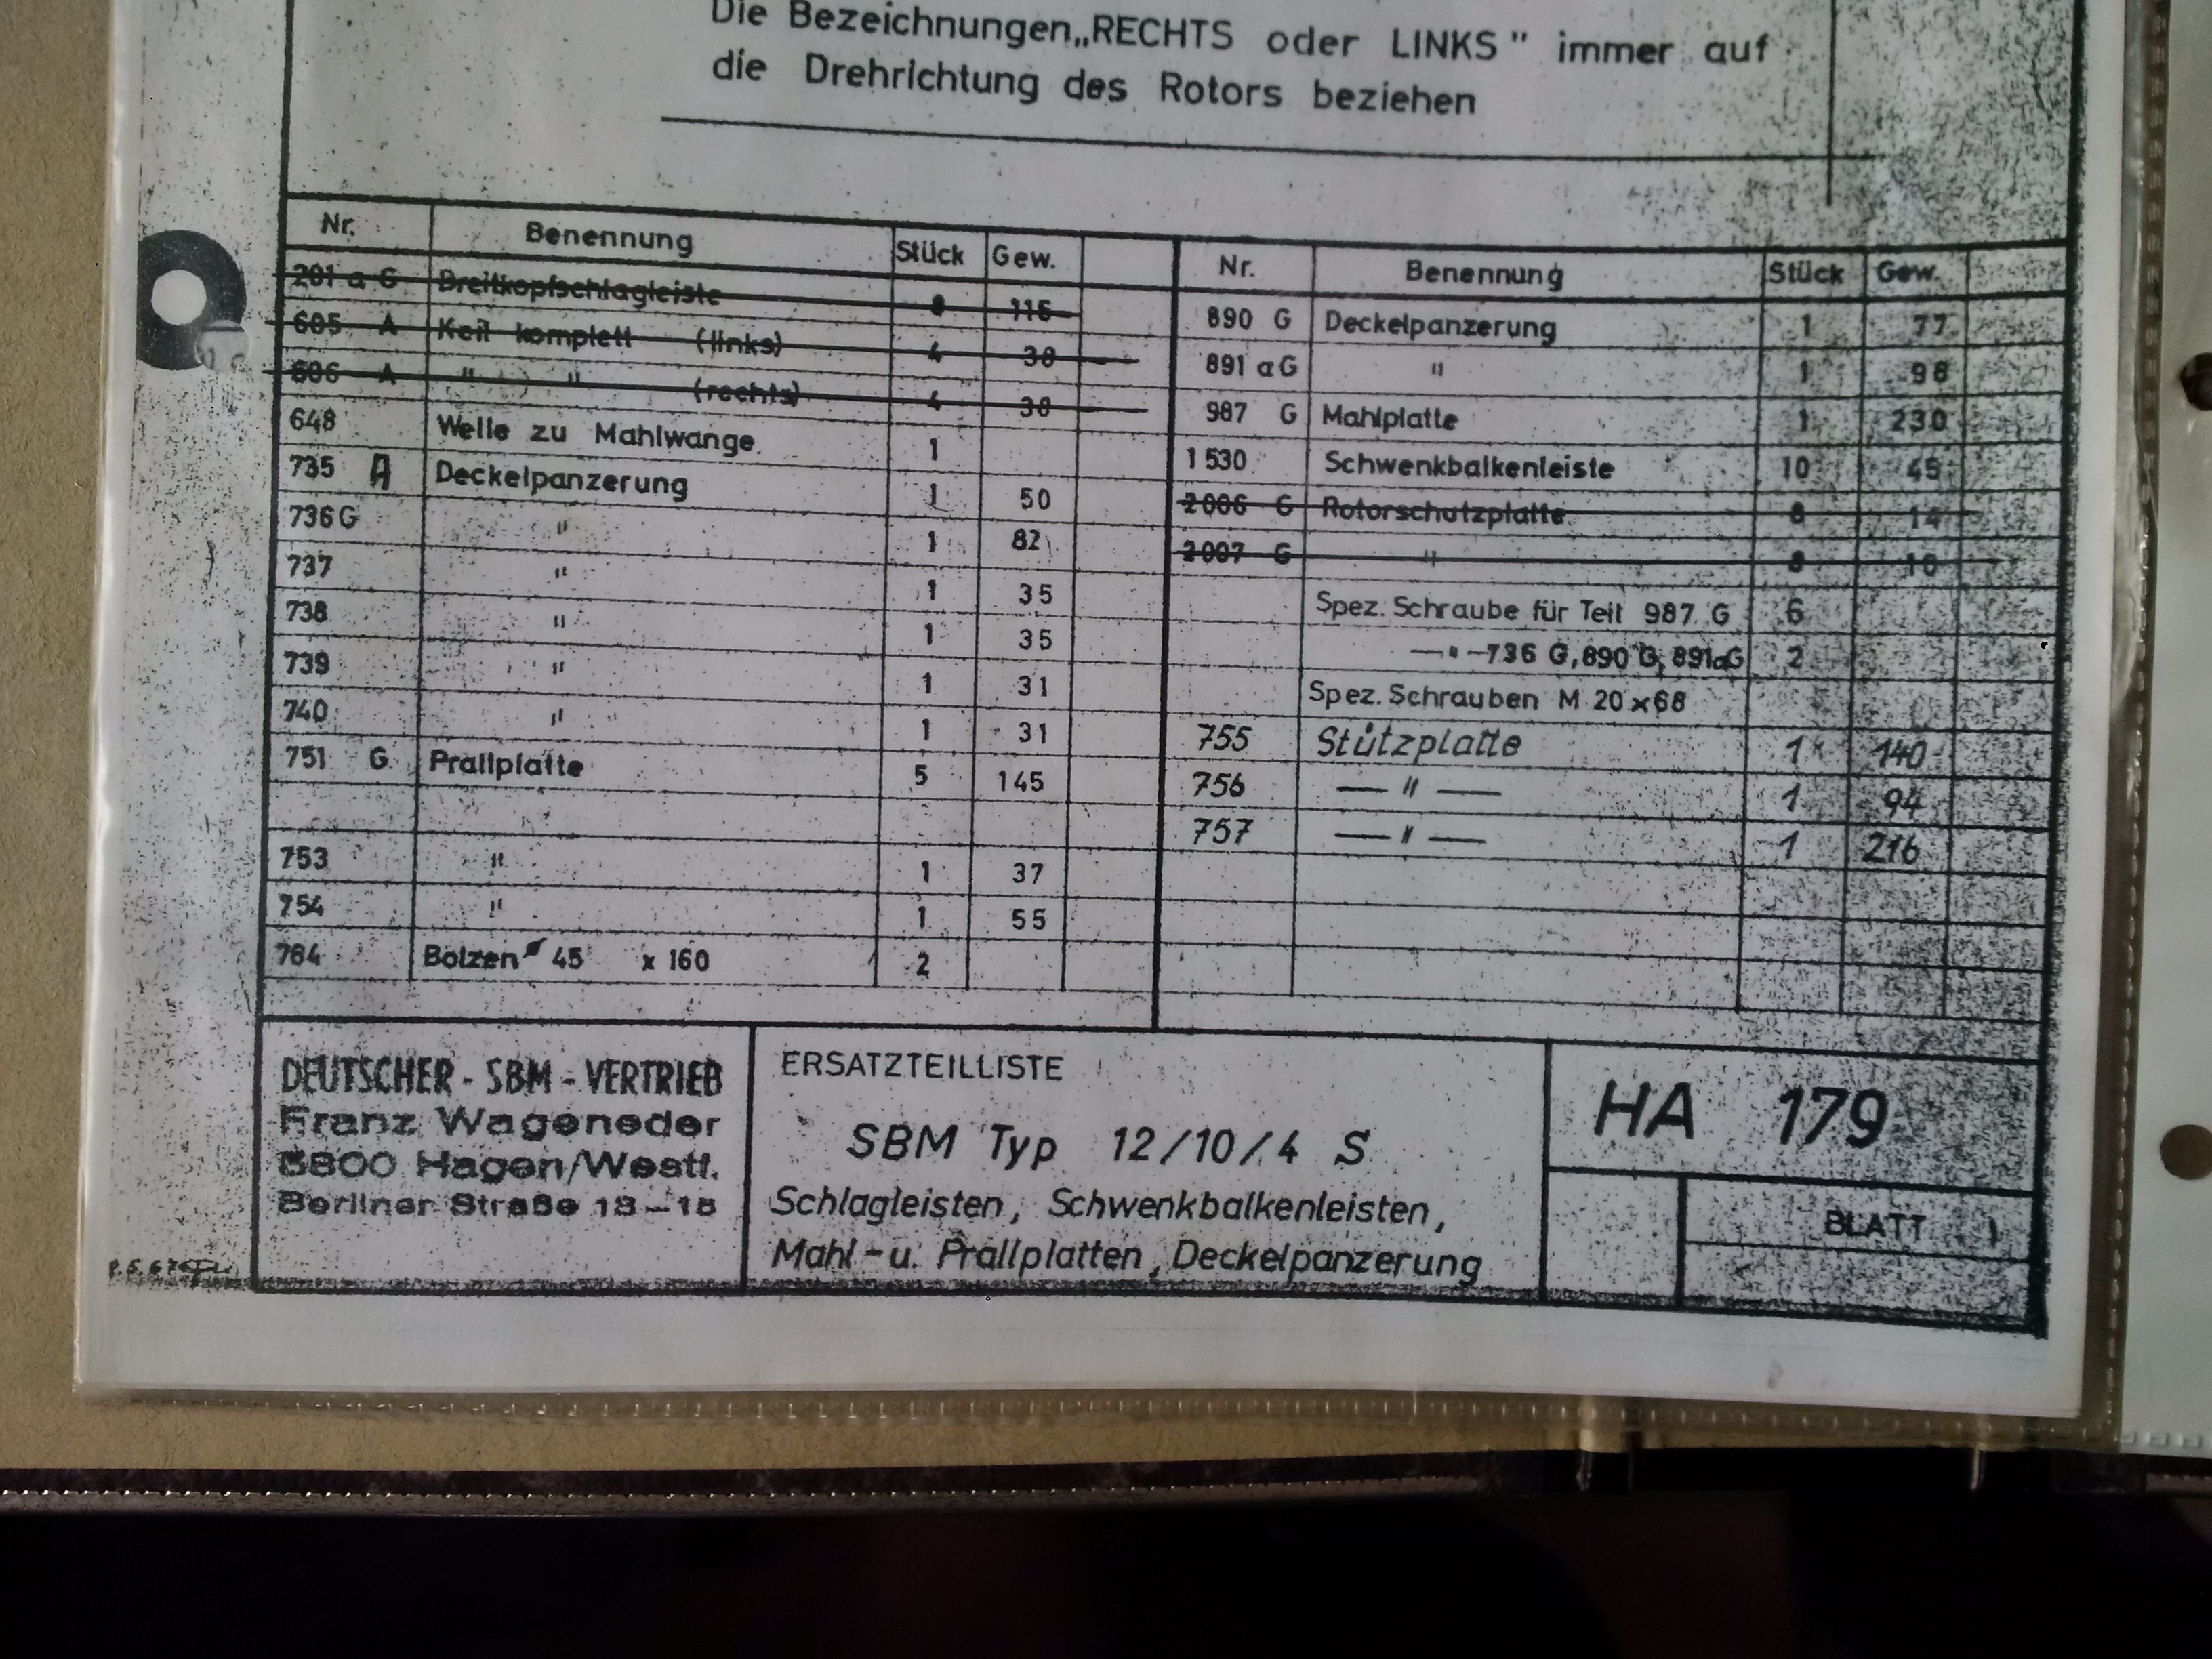 Die Bezeichnungen „RECHTS oder LINKS" immer auf
die Drehrichtung des Rotors beziehen
Nr. Benennung Stück Gew.
201 a G Breitkopfschlagleiste 8 115
605 A Keil komplett (links) 4 30
606 A " " (rechts) 4 30
648 Welle zu Mahlwange 1
735 A Deckelpanzerung 1 50
736 G " 1 82
737 " 1 35
738 " 1 35
739 " 1 31
740 " 1 31
751 G Prallplatte 5 145
753 " 1 37
754 " 1 55
764 Bolzen ø 45 x 160 2
Nr. Benennung Stück Gew.
890 G Deckelpanzerung 1 77
891 aG " 1 98
987 G Mahlplatte 1 230
1530 Schwenkbalkenleiste 10 45
2006 G Rotorschutzplatte 8 14
2007 G " 8 10
Spez. Schraube für Teil 987 G 6
— " — 736 G, 890 G, 891aG 2
Spez. Schrauben M 20 x 68
755 Stützplatte 1 140
756 — " — 1 94
757 — " — 1 216
DEUTSCHER - SBM - VERTRIEB
Franz Wageneder
5800 Hagen/Westf.
Berliner Straße
ERSATZTEILLISTE
SBM Typ 12/10/4 S
Schlagleisten, Schwenkbalkenleisten,
Mahl- u. Prallplatten, Deckelpanzerung
HA 179
BLATT 1